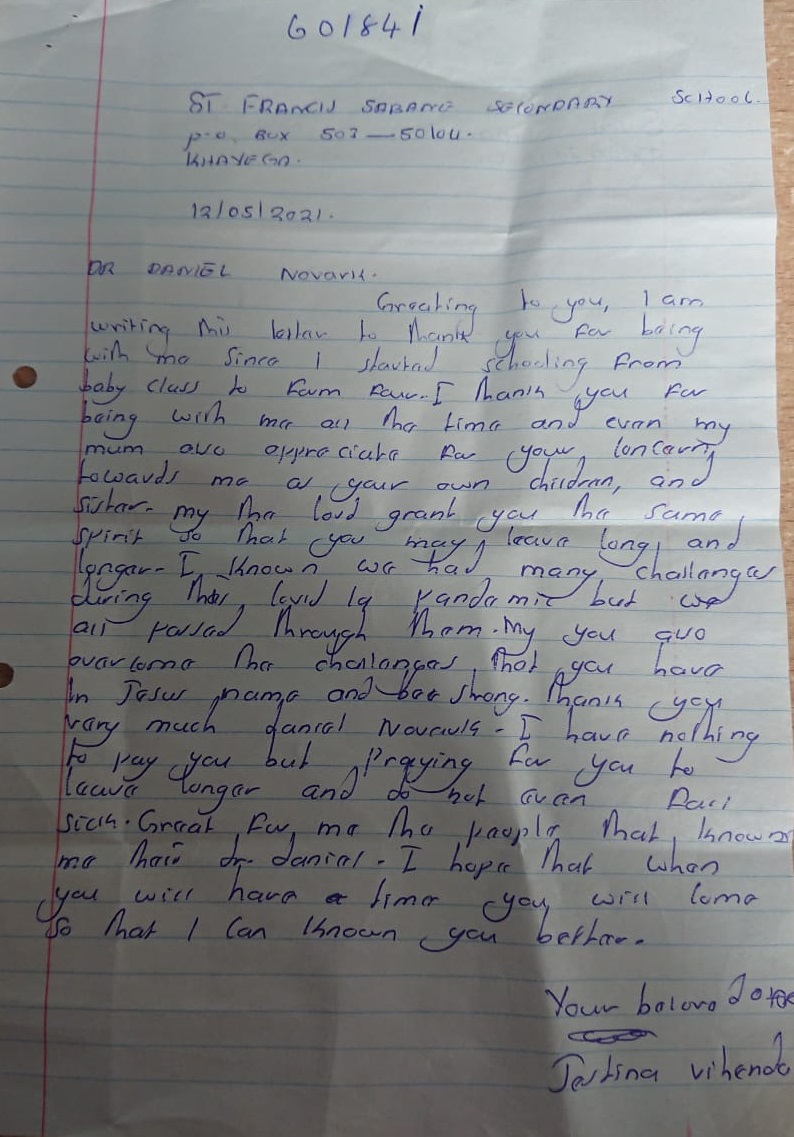 601841
ST FRANCIS SABANE SECONDARY SCHOOL.
P.O. BOX 503 — 50104.
KHAYEGA.
12/05/2021.
DR DANIEL Novark.
Greating to you, I am
writing this letter to thank you for being
with me since I started schooling from
baby class to form four. I thank you for
being with me all the time and even my
mum also appreciate for your concern
towards me as your own children, and
sister. my the lord grant you the same
spirit so that you may leave long and
longer. I known we had many challenges
during this covid 19 pandemic but we
all passed through them. My you also
overcome the challenges that you have
in Jesus name and bee strong. Thank you
very much danial Novark. I have nothing
to pay you but praying for you to
leave longer and do not even feel
sick. Great for me the people that known
me there dr. danial. I hope that when
you will have a time you will come
so that I can known you better.
Your belove
Jestina vihenda